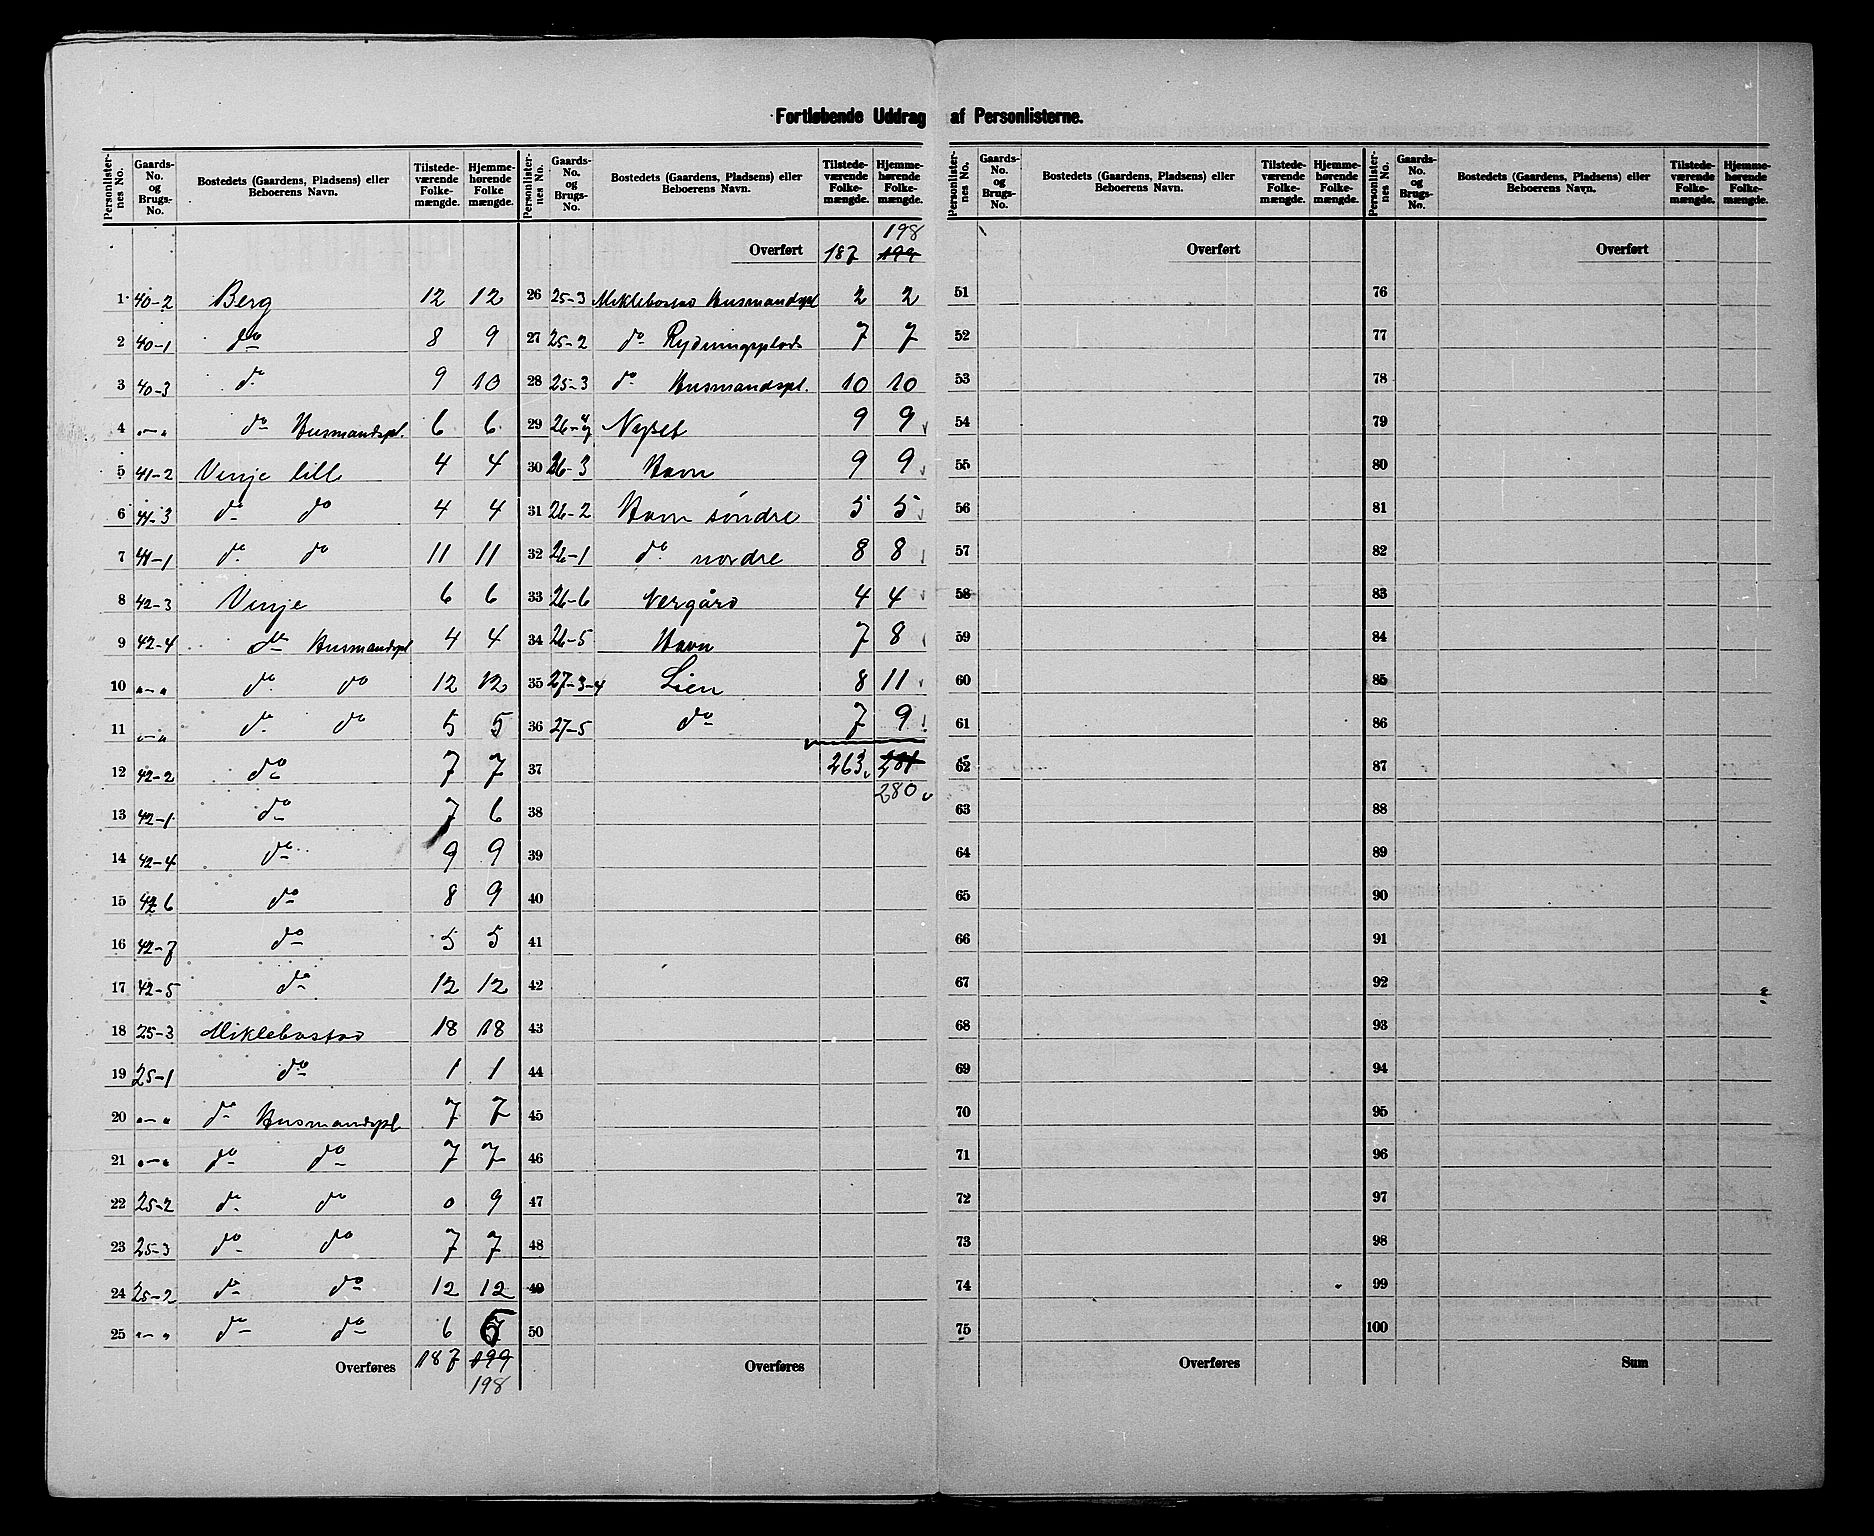 Fortløbende Uddrag af Personlisterne.
Personlister-nes No. Gaards-No. og Brugs-No. Bostedets (Gaardens, Pladsens) eller Beboerens Navn. Tilstede-værende Folke-mængde. Hjemme-hørende Folke mængde.
1 40-2 Berg 12 12
2 40-1 do 8 9
3 40-3 do 9 10
4 „-„ do Husmandspl. 6 6
5 41-2 Vinje lille 4 4
6 41-3 do do 4 4
7 41-1 do do 11 11
8 42-3 Vinje 6 6
9 42-4 do Husmandspl 4 4
10 „-„ do do 12 12
11 „-„ do do 5 5
12 42-2 do 7 7
13 42-1 do 7 6
14 42-4 do 9 9
15 42 6 do 8 9
16 42-7 do 5 5
17 42-5 do 12 12
18 25-3 Miklebostad 18 18
19 25-1 do 1 1
20 „-„ do Husmandspl 7 7
21 „-„ do do 7 7
22 25-2 do do 0 9
23 25-3 do do 7 7
24 25-2 do do 12 12
25 „-„ do do 6 6
Overføres 187 199
198
Personlister-nes No. Gaards-No. og Brugs-No. Bostedets (Gaardens, Pladsens) eller Beboerens Navn. Tilstede-værende Folke-mængde. Hjemme-hørende Folke-mængde.
198
Overført 187 199
26 25-3 Miklebostad Husmandspl 2 2
27 25-2 do Rydningsplads 7 7
28 25-3 do Husmandspl. 10 10
29 Nyset 9 9
30 26-3 Havn 9 9
31 26-2 Havn søndre 5 5
32 26-1 do nordre 8 8
33 26-6 Nergård 4 4
34 26-5 Havn 7 8
35 27-3-4 Lien 8 11
36 27-5 do 7 9
37 263 281
280
38
39
40
41
42
43
44
45
46
47
48
49
50
Overføres
Personlister-nes No. Gaards-No. og Brugs-No. Bostedets (Gaardens, Pladsens) eller Beboerens Navn. Tilstede-værende Folke-mængde. Hjemme-hørende Folke-mængde.
Overført
51
52
53
54
55
56
57
58
59
60
61
62
63
64
65
66
67
68
69
70
71
72
73
74
75
Overføres
Personlister-nes No. Gaards-No. og Brugs-No. Bostedets (Gaardens, Pladsens) eller Beboerens Navn. Tilstede-værende Folke-mængde. Hjemme-hørende Folke-mængde.
Overført
76
77
78
79
80
81
82
83
84
85
86
87
88
89
90
91
92
93
94
95
96
97
98
99
100
Sum